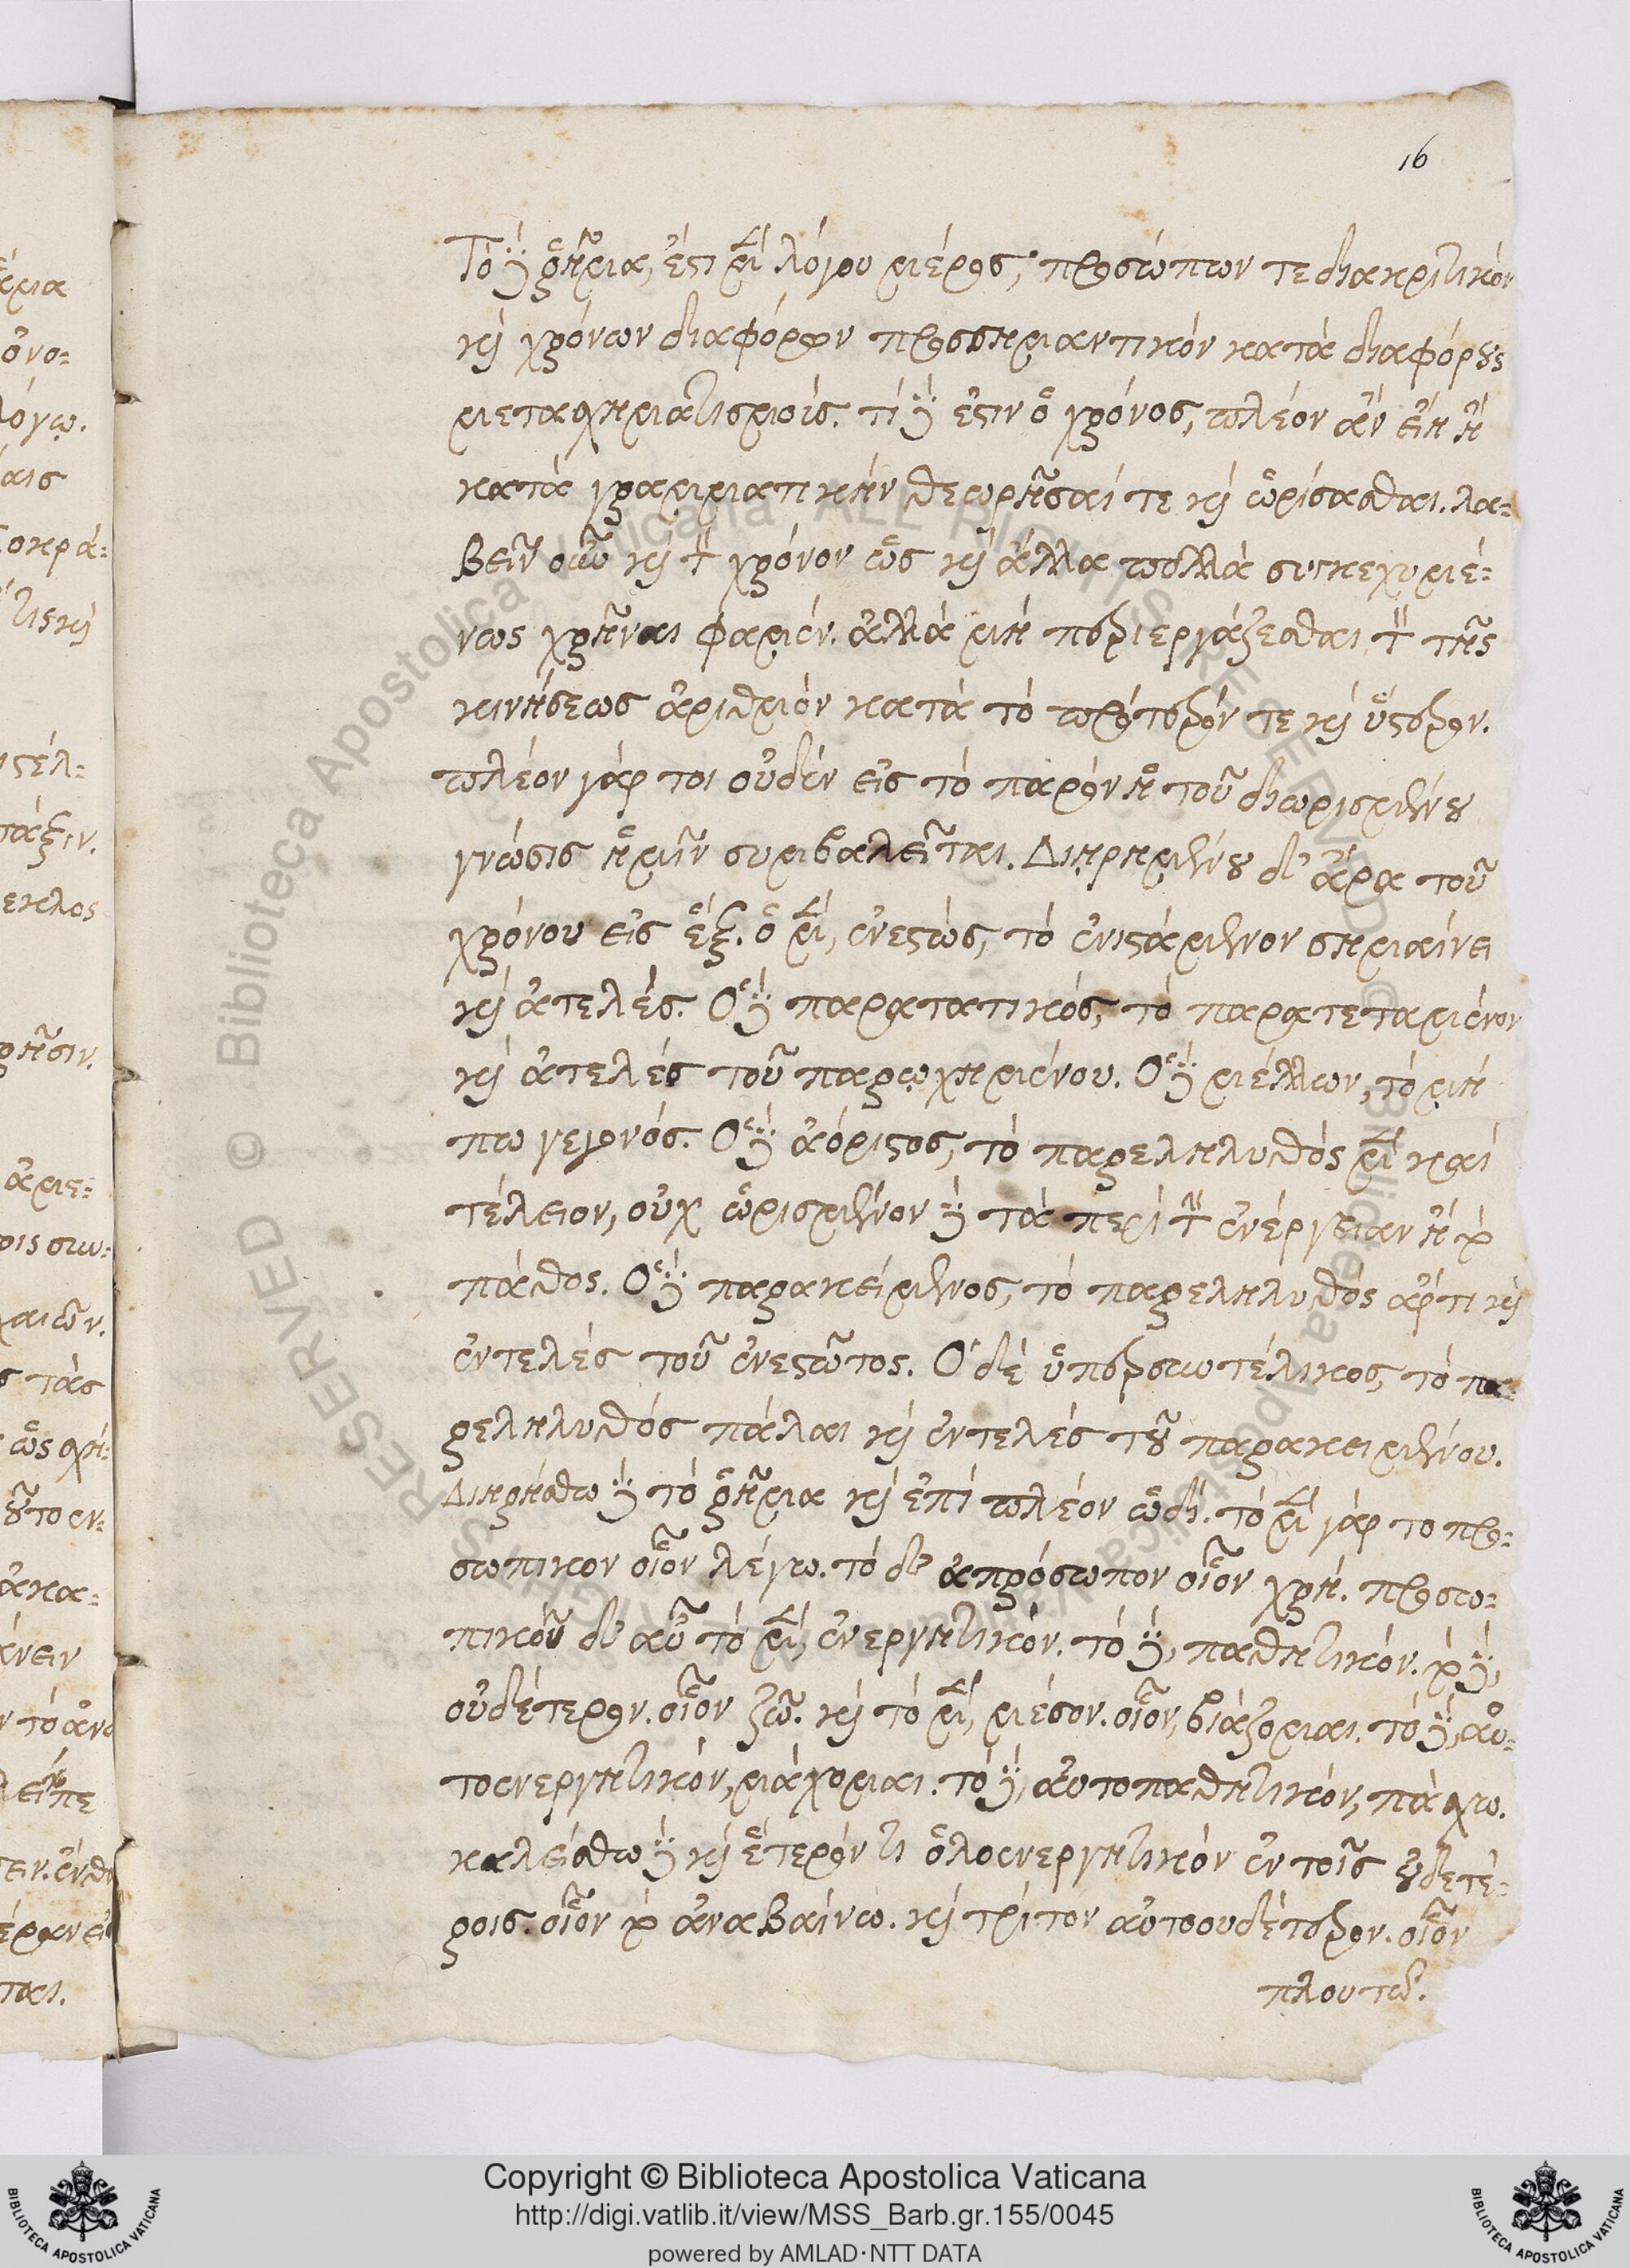 16
Τὸ δὲ ῥῆμα, ἔστι μὲν λόγου μέρος, προσώπων τε διακριτικόν
καὶ χρόνων διαφόρων προσσημαντικόν κατὰ διαφόρους
μετασχηματισμούς. τί δέ ἐστιν ὁ χρόνος, πλέον ἂν εἴη ἢ
κατὰ γραμματικὴν θεωρῆσαί τε καὶ ὡρίσασθαι. λα-
βεῖν οὖν καὶ τὸν χρόνον ὡς καὶ ἄλλα πολλὰ συγκεχυμέ-
νως χρῆναι φαμέν. ἀλλὰ μὴ περιεργάζεσθαι τὸν τῆς
κινήσεως ἀριθμόν κατὰ τὸ πρότερόν τε καὶ ὕστερον.
πλέον γάρ τοι οὐδὲν εἰς τὸ παρὸν ἡ τοῦ διωρισμένου
γνώσις ἡμῖν συμβαλεῖται. Διῃρημένου δ' ἄρα τοῦ
χρόνου εἰς ἕξ. ὁ μὲν, ἐνεστώς, τὸ ἐνιστάμενον σημαίνει
καὶ ἀτελές. Ὁ δὲ παρατατικός, τὸ παρατεταμένον
καὶ ἀτελές τοῦ παρῳχημένου. Ὁ δὲ μέλλων, τὸ μή
πω γεγονός. Ὁ δὲ ἀόριστος, τὸ παρεληλυθός μὲν καὶ
τέλειον, οὐχ ὡρισμένον δὲ τὰ περὶ τὴν ἐνέργειαν ἢ τὸ
πάθος. Ὁ δὲ παρακείμενος, τὸ παρεληλυθός ἄρτι καὶ
ἐντελές τοῦ ἐνεστῶτος. Ὁ δὲ ὑπερσυντέλικος, τὸ πα-
ρεληλυθός πάλαι καὶ ἐντελές τοῦ παρακειμένου.
Διῃρήσθω δὲ τὸ ῥῆμα καὶ ἐπὶ πλέον ὡδί. τὸ μὲν γὰρ το προ-
σωπικον οἷον λέγω. τὸ δ' ἀπρόσωπον οἷον χρή. προσω-
πικοῦ δ' αὖ τὸ μὲν, ἐνεργητικόν. τὸ δὲ, παθητικόν. τὸ δὲ,
οὐδέτερον. οἷον ζῶ. καὶ τὸ μὲν, μέσον. οἷον, βιάζομαι. τὸ δὲ, αὐ-
τοενεργητικόν, μάχομαι. τὸ δὲ, αὐτοπαθητικόν, πάσχω.
καλείσθω δὲ καὶ ἕτερόν τι ὁλοενεργητικόν ἐν τοῖς οὐδετέ-
ροις. οἷον τὸ ἀναβαίνω. καὶ τρίτον αὐτοουδέτερον. οἷον
πλουτῶ.
Copyright © Biblioteca Apostolica Vaticana
http://digi.vatlib.it/view/MSS_Barb.gr.155/0045
powered by AMLAD·NTT DATA